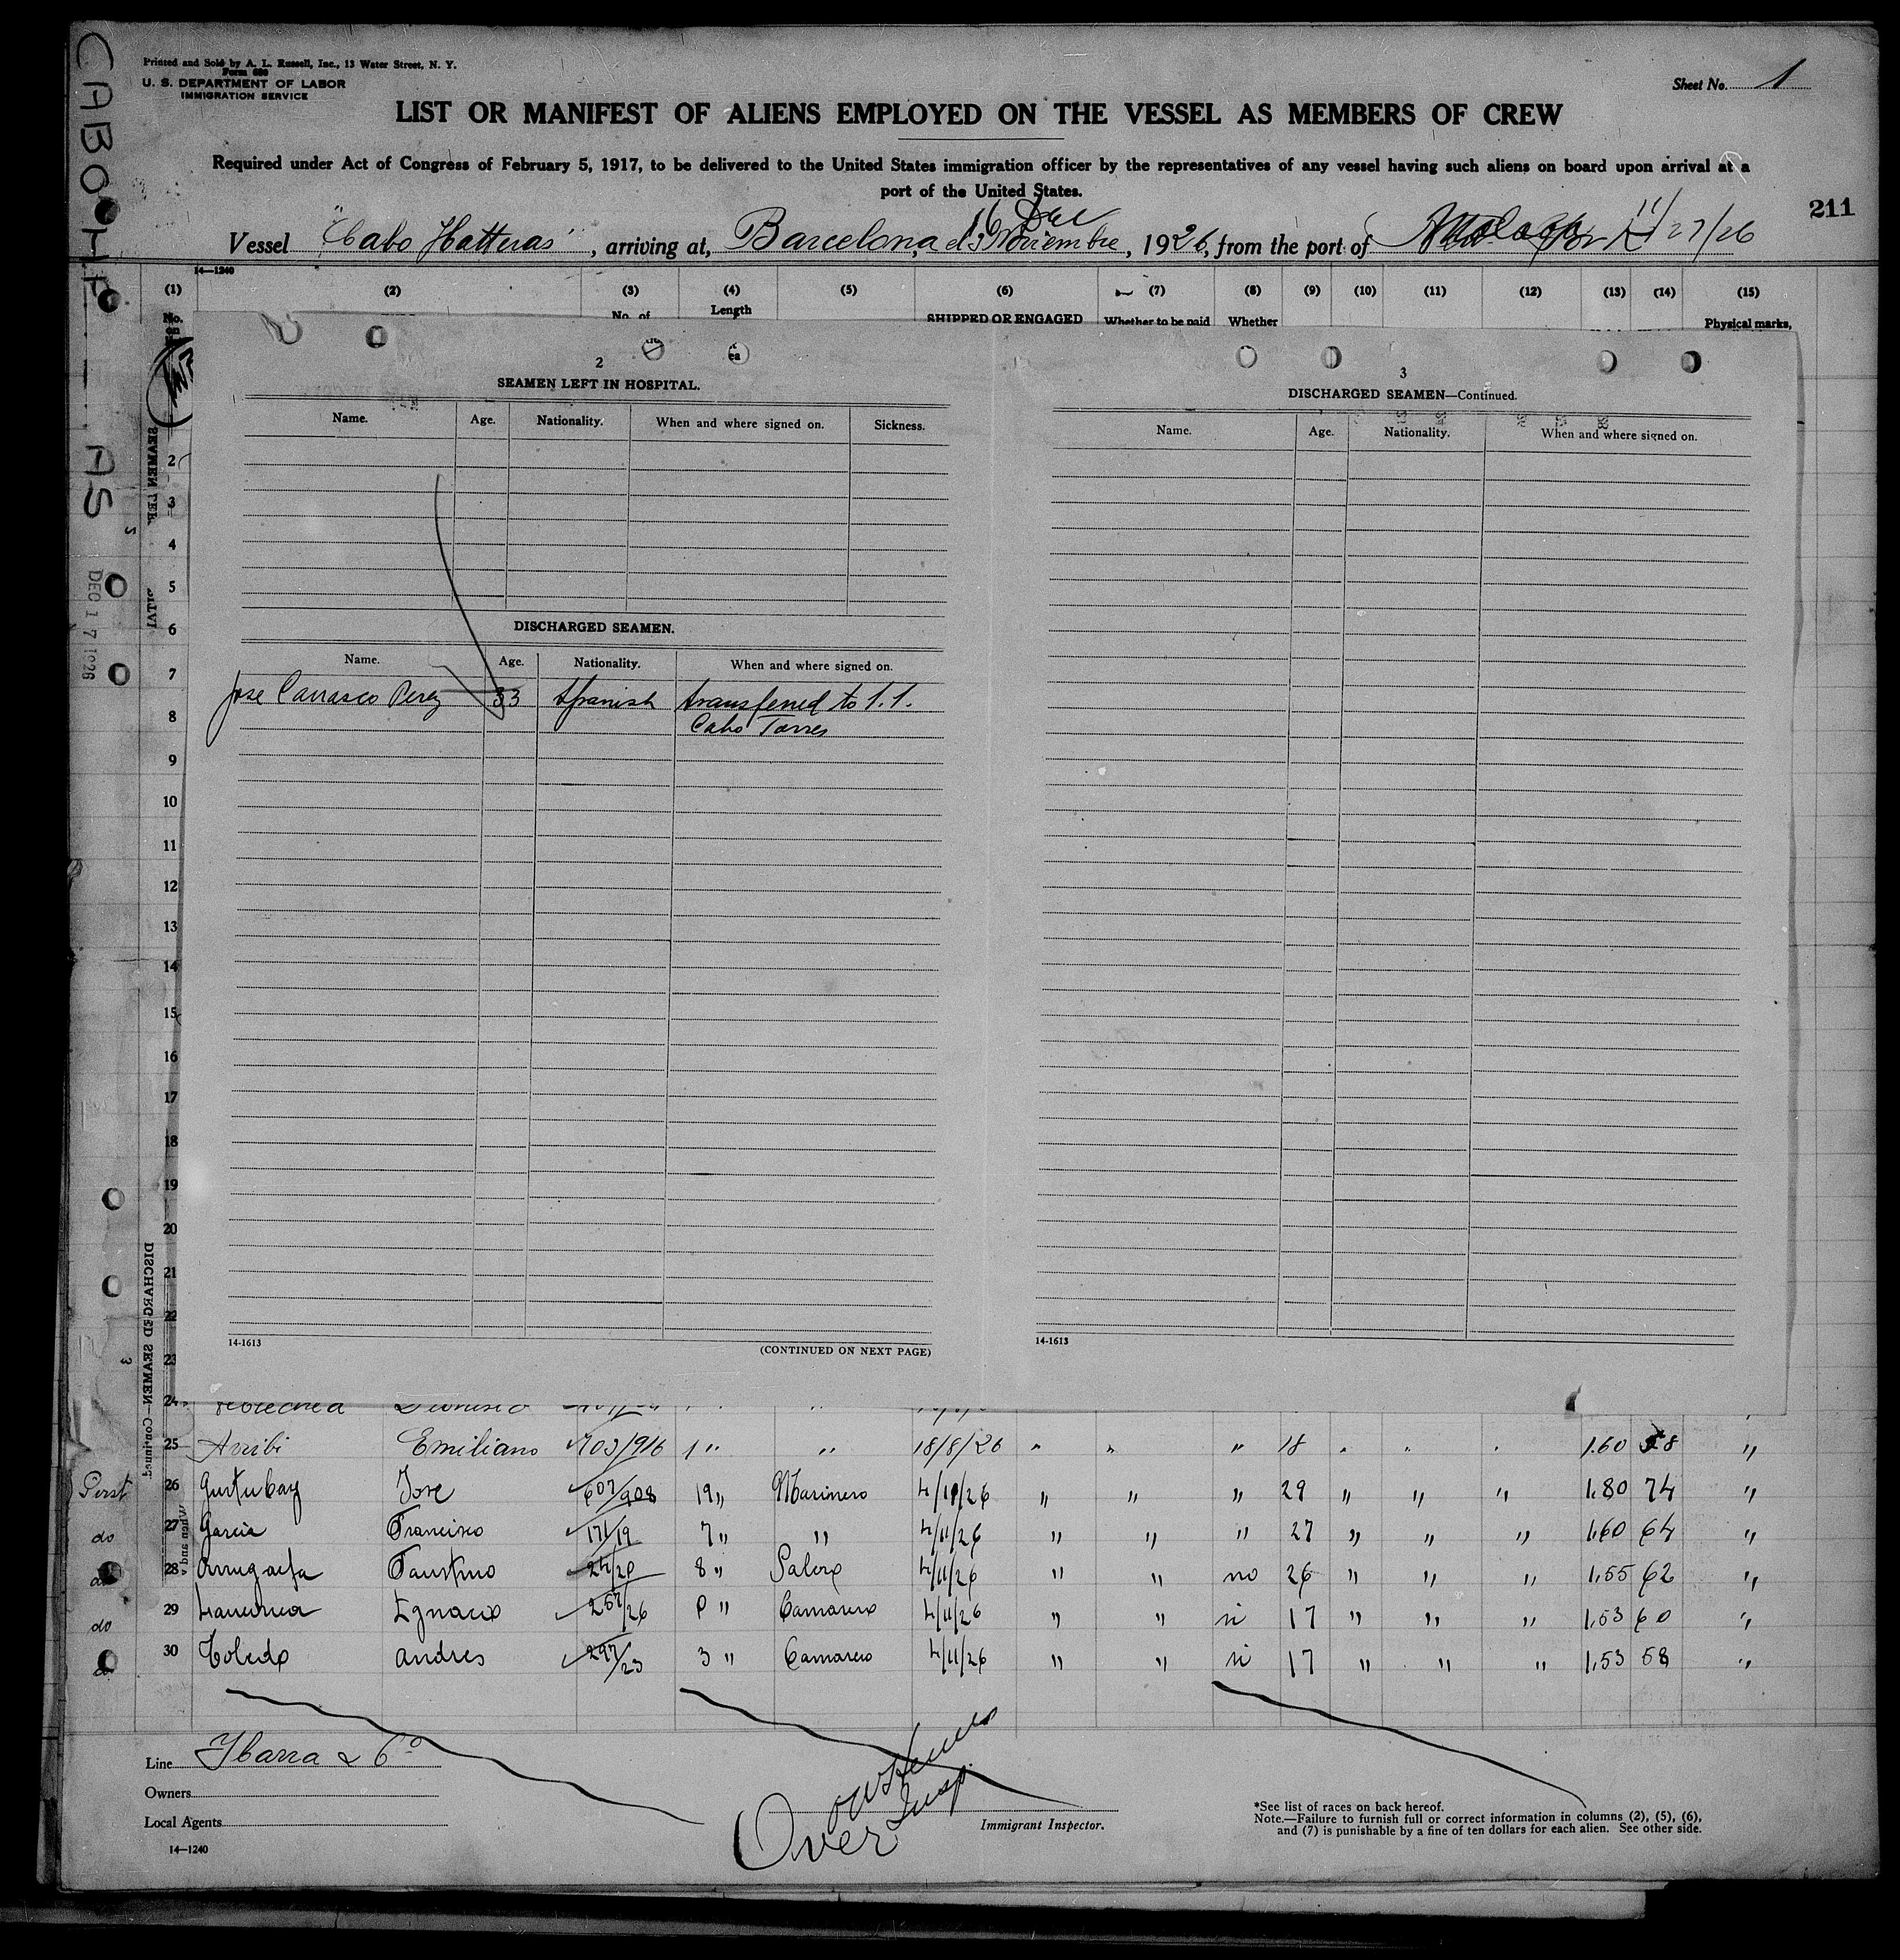 Printed and Sold by A. L. Russell, Inc., 13 Water Street, N. Y.
Form 680
U. S. DEPARTMENT OF LABOR
IMMIGRATION SERVICE
Sheet No. 1
LIST OR MANIFEST OF ALIENS EMPLOYED ON THE VESSEL AS MEMBERS OF CREW
Required under Act of Congress of February 5, 1917, to be delivered to the United States immigration officer by the representatives of any vessel having such aliens on board upon arrival at a
port of the United States.
211
16 Dec
Vessel "Cabo Hatteras", arriving at, Barcelona, el 3 Noviembre, 1926, from the port of 11/27/26
14—1240
(1) (2) (3) (4) (5) (6) (7) (8) (9) (10) (11) (12) (13) (14) (15)
No. on No. of Length SHIPPED OR ENGAGED Whether to be paid Whether Physical marks,
2
SEAMEN LEFT IN HOSPITAL.
Name. Age. Nationality. When and where signed on. Sickness.
DISCHARGED SEAMEN.
Name. Age. Nationality. When and where signed on.
Jose Carrasco Perez 33 Spanish transferred to S.S.
Cabo Torres
14-1613
(CONTINUED ON NEXT PAGE)
3
DISCHARGED SEAMEN—Continued.
Name. Age. Nationality. When and where signed on.
14-1613
2
3
4
5
6
7
8
9
10
11
12
13
14
15
16
17
18
19
20
21
22
23
24
25 Emiliano 703/916 1 " " 18/8/26 " " " 18 " " " 1.60 58 "
First 26 Jose 607/908 19 " Marinero 4/11/26 " " " 29 " " " 1.80 74 "
do 27 Garcia Francisco 171/19 7 " " 4/11/26 " " " 27 " " " 1.60 64 "
28 Faustino 24/20 8 " Palero 4/11/26 " " no 26 " " " 1.55 62 "
do 29 Ignacio 257/26 0 " Camarero 4/11/26 " " si 17 " " " 1.53 60 "
30 Toledo Andres 297/23 3 " Camarero 4/11/26 " " si 17 " " " 1.53 58 "
Line Ybarra & Cº
Owners
Local Agents
14—1240
Insp.
Over
Immigrant Inspector.
*See list of races on back hereof.
Note.—Failure to furnish full or correct information in columns (2), (5), (6),
and (7) is punishable by a fine of ten dollars for each alien. See other side.
DEC 17 1926
DISCHARGED SEAMEN—Continued.